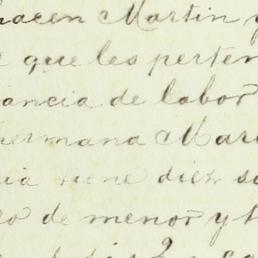 hacen Martin y
que les perten
ancia de labor
hermana Mar
ia tiene diez
o de menor y